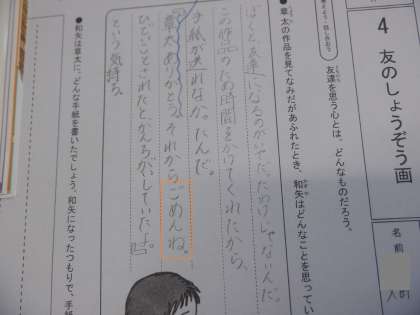 4 友のしょうぞう画
名前
友達を思う心とは、どんなものだろう。
● 章太の作品を見てなみだがあふれたとき、和矢はどんなことを思ってい
ぼくと友達になるのがいやだったわけじゃないんだ。
この作品のため時間をかけてくれたから、
手紙が送れなかったんだ。
章太ありがとう。それからごめんね。
ひていてきされたとかんちがいしていたよ。
という気持ち
● 和矢は章太に、どんな手紙を書いたでしょう。和矢になったつもりで、手紙